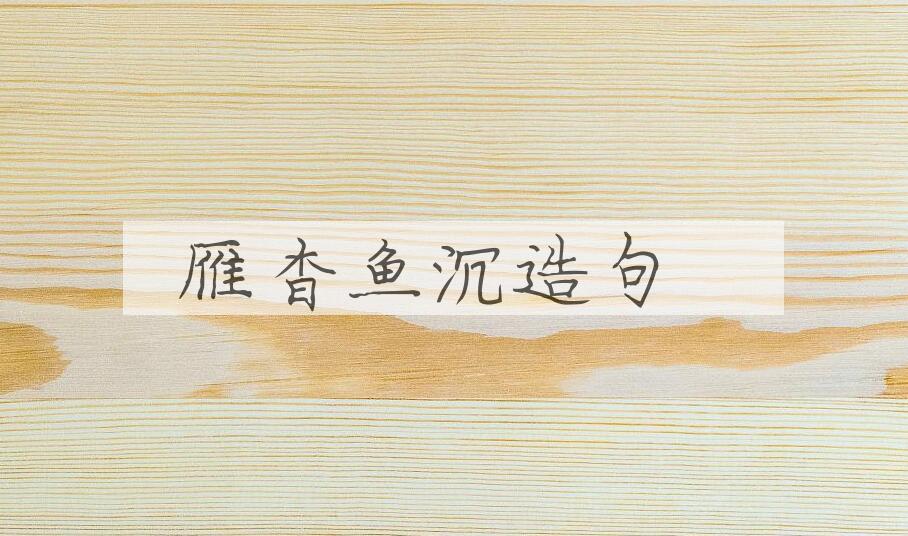 雁杳鱼沉造句